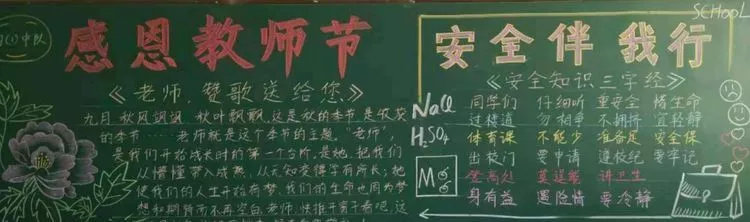 (1)中队
感恩教师节
《老师,赞歌送给您》
九月,秋风飒飒,秋叶飘飘,这是秋的季节是收获
的季节……老师就是这个季节的主题,"老师",
是我们开始成长时的第一个台阶,是她,把我们
从懵懂带入成熟,从无知变得学有所长;她
使我们的人生开始有梦,我们的生命也因为梦
想和期待而不再空白,老师,快推开窗子看吧,这
SCHooL
安全伴我行
《安全知识三字经》
同学们 仔细听 重安全 惜生命
过楼道 勿相争 不拥挤 宜轻静
体育课 不能少 准备足 安全保
出校门 要申请 违校纪 要牢记
讲卫生
身有益 遇险情 要冷静
NaCl
H₂SO₄
Mg